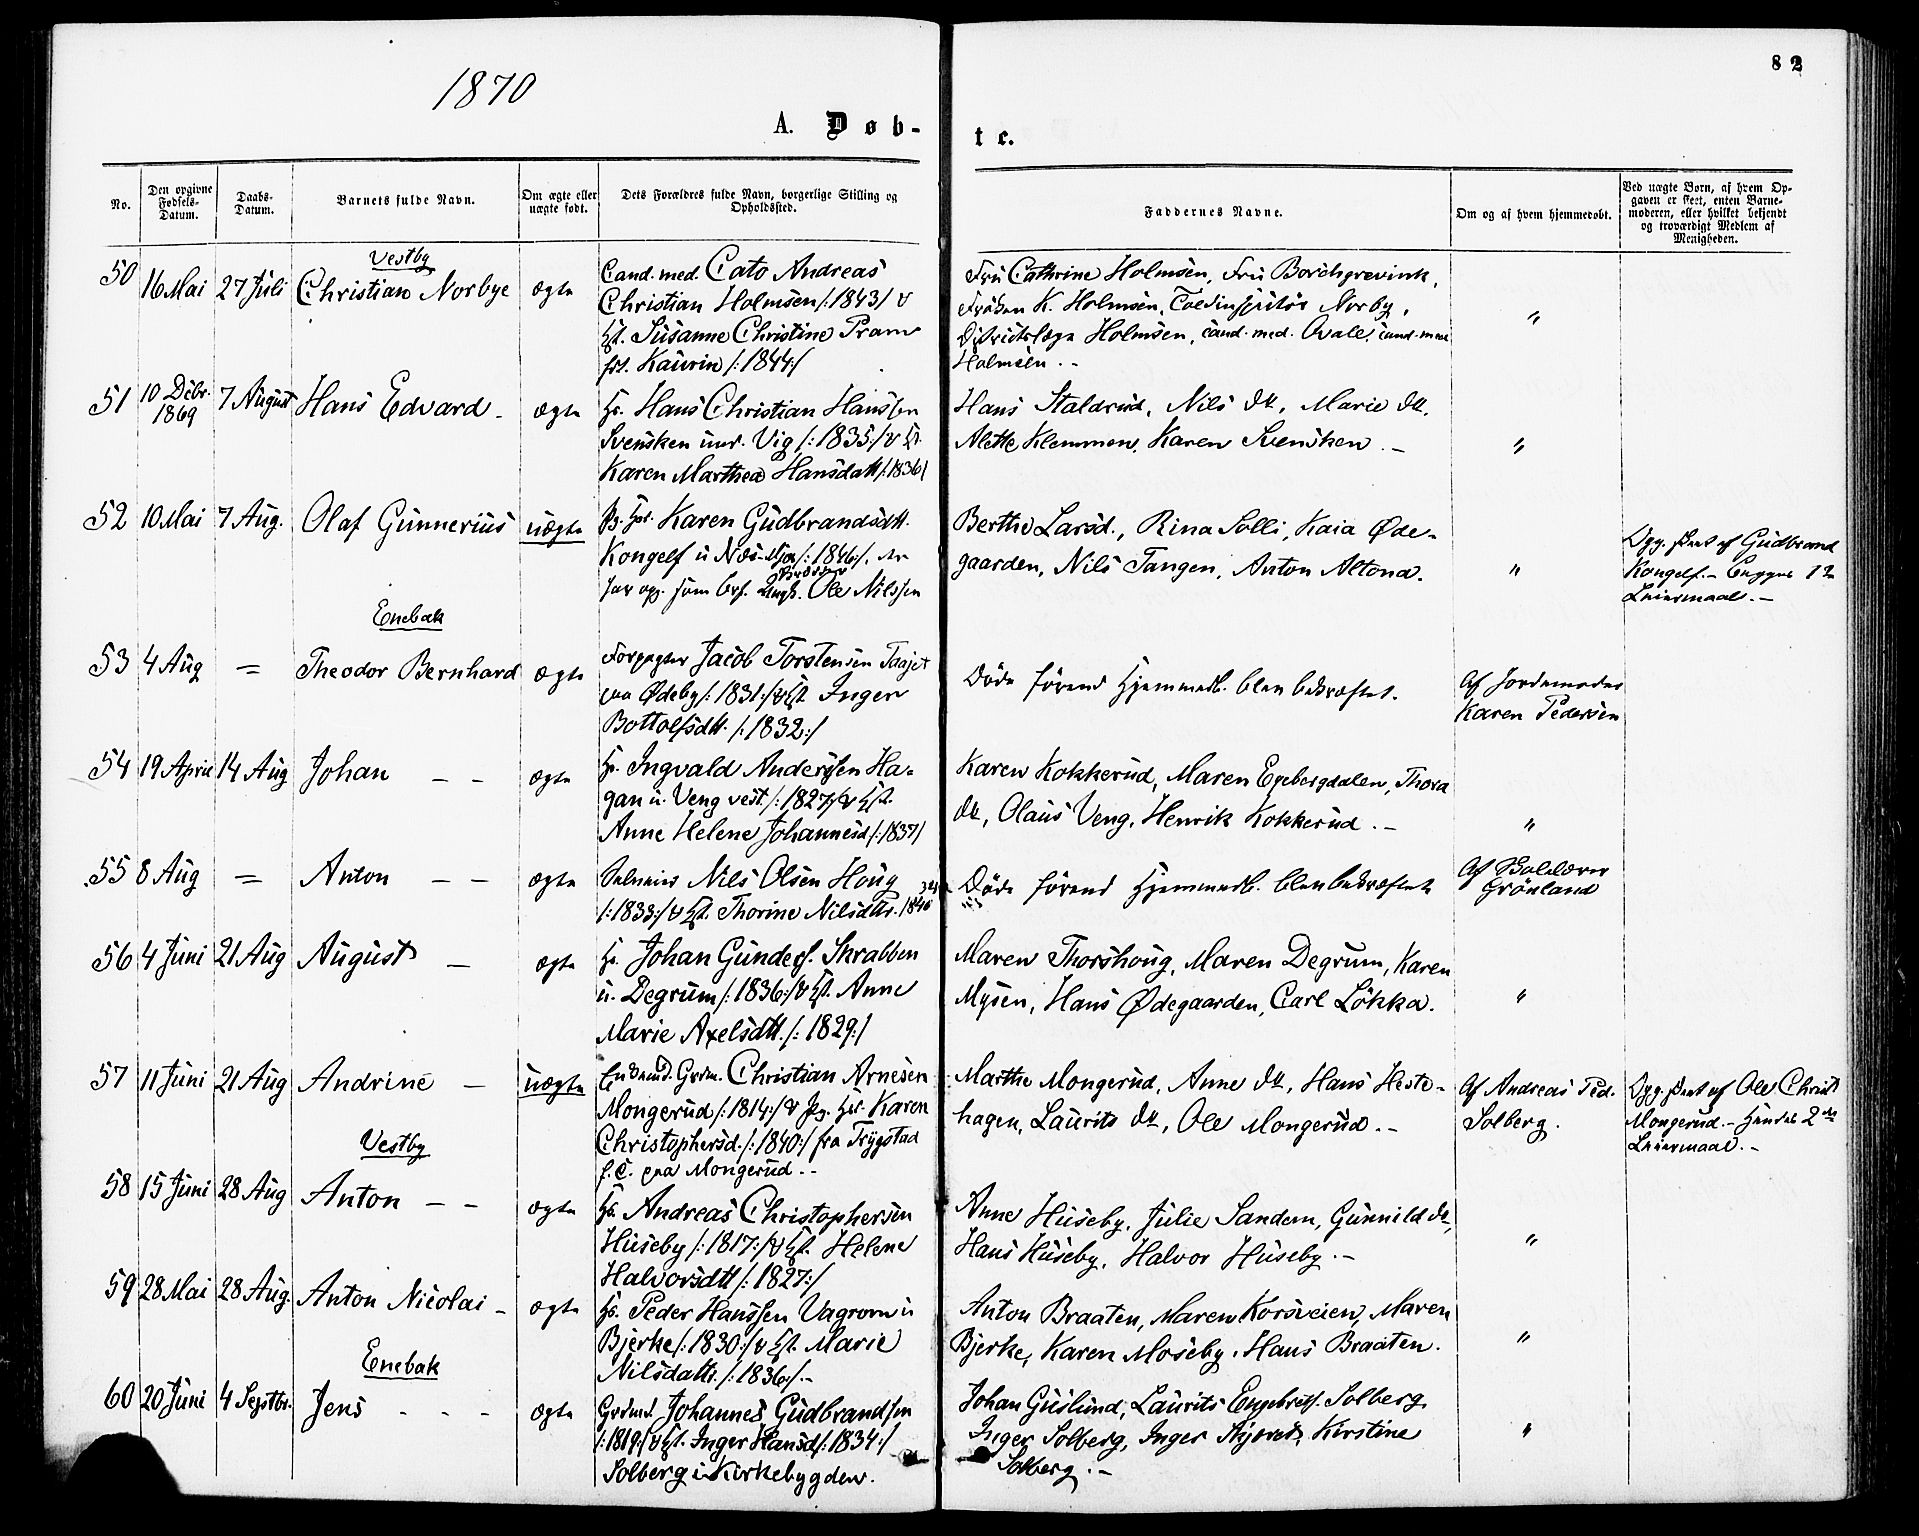 1870
82
A. Døb-
te.
No.
Den opgivne Fødsels-Datum.
Daabs-Datum.
Barnets fulde Navn.
Om ægte eller uægte født.
Dets Forældres fulde Navn, borgerlige Stilling og Opholdssted.
Faddernes Navne.
Om og af hvem hjemmedøbt.
Ved uægte Børn, af hvem Opgaven er skeet, enten Barnemoderen, eller hvilket bekjendt og troværdigt Medlem af Menigheden.
Vestby
50 16 Mai 27 Juli Christian Norbye ægte
Cand. med. Cato Andreas
Christian Holmsen /:1843/ &
Hst. Susanne Christine Pram
fød. Kaurin /:1844:/
Fru Cathrine Holmsen, Fru Borchgrevink,
Frøken K. Holmsen, Toldinspektør Norby,
Distriktslæge Holmsen, cand. med. Qvale, cand. med.
Holmsen. - "
51 10 Debr. 1869 7 August Hans Edvard - ægte
Hs. Hans Christian Hanssen
Svensken und. Vig /:1835:/ & Hst.
Karen Marthea Hansdatt /:1836/
Hans Staldrud, Nils do, Marie do,
Alette Klemmen, Karen Svensken. - "
52 10 Mai 7 Aug. Olaf Gunnerius uægte
Pg. Karen Gudbrandsdtt.
Kongelf u Næs /:1846/.
Ole Nilssen
Berthe Larsd., Rina Solli, Kaia Øde-
gaarden, Nils Tangen, Anton Altona. "
Opg. skeet af Gudbrand
Kongelf. -
Leiermaal. -
Enebak
53 4 Aug = Theodor Bernhard ægte
Forpagter Jacob Torstensen Taajet
paa Ødeby /:1831:/ & Hst. Inger
Bottolfsdtt. /:1832:/
Døde førend Hjemmedb. blev bekræftet.
Af Jordemoder
Karen Pedersen
54 19 April 14 Aug Johan - - ægte
Hs. Ingvald Anderssen Ha-
gan u. Veng vest. /:1827/ & Hst.
Anne Helene Johannesd /:1837/
Karen Kokkerud, Maren Egebergdalen, Thora
do, Olaus Veng, Henrik Kokkerud. - "
55 8 Aug = Anton - - ægte
Nils Olsen Houg
/:1833:/ & Hst. Thorine Nilsdtr. 1840
Døde førend Hjemmedb. blev bekræftet
Af
Grönland
56 4 Juni 21 Aug August - ægte
Hs. Johan Gunders. Skrabben
u. Degrum /:1836:/ & Hst. Anne
Marie Axelsdtt. /:1829:/
Maren Thorshoug, Maren Degrum, Karen
Mysen, Hans Ødegaarden, Carl Løkka. "
57 11 Juni 21 Aug Andrine - uægte
Grdm. Christian Arnesen
Mongerud /:1814:/ & Pg. Karen
Christophersd. /:1840:/ fra Trygstad
f. C. paa Mongerud. -
Marthe Mongerud, Anne do, Hans Heste-
hagen, Laurits do, Ole Mongerud. -
Af Andreas Ped.
Solberg.
Opg. skeet af Ole Christ
Mongerud. - Hendes 2det
Leiermaal. -
Vestby
58 15 Juni 28 Aug Anton - - ægte
Hs. Andreas Christophersen
Huseby /:1817:/ & Hst. Helene
Halvorsdtt /:1827:/
Anne Huseby, Julie Sandem, Gunnild do,
Hans Huseby, Halvor Huseby. - "
59 28 Mai 28 Aug. Anton Nicolai - ægte
Hs. Peder Hanssen Vagrom u
Bjerke /:1830:/ & Hst. Marie
Nilsdattr. /:1836/. -
Anton Braaten, Maren Korsveien, Maren
Bjerke, Karen Moseby, Hans Braaten. "
Enebak
60 20 Juni 4 Septbr. Jens - - - ægte
Grdmd. Johannes Gudbrandsen
/:1819:/ & Hst. Inger Hansd /:1834:/
Solberg i Kirkebygden.
Johan Guslund, Laurits Engebrets. Solberg
Inger Solberg, Inger, Kirstine
Solberg. - "